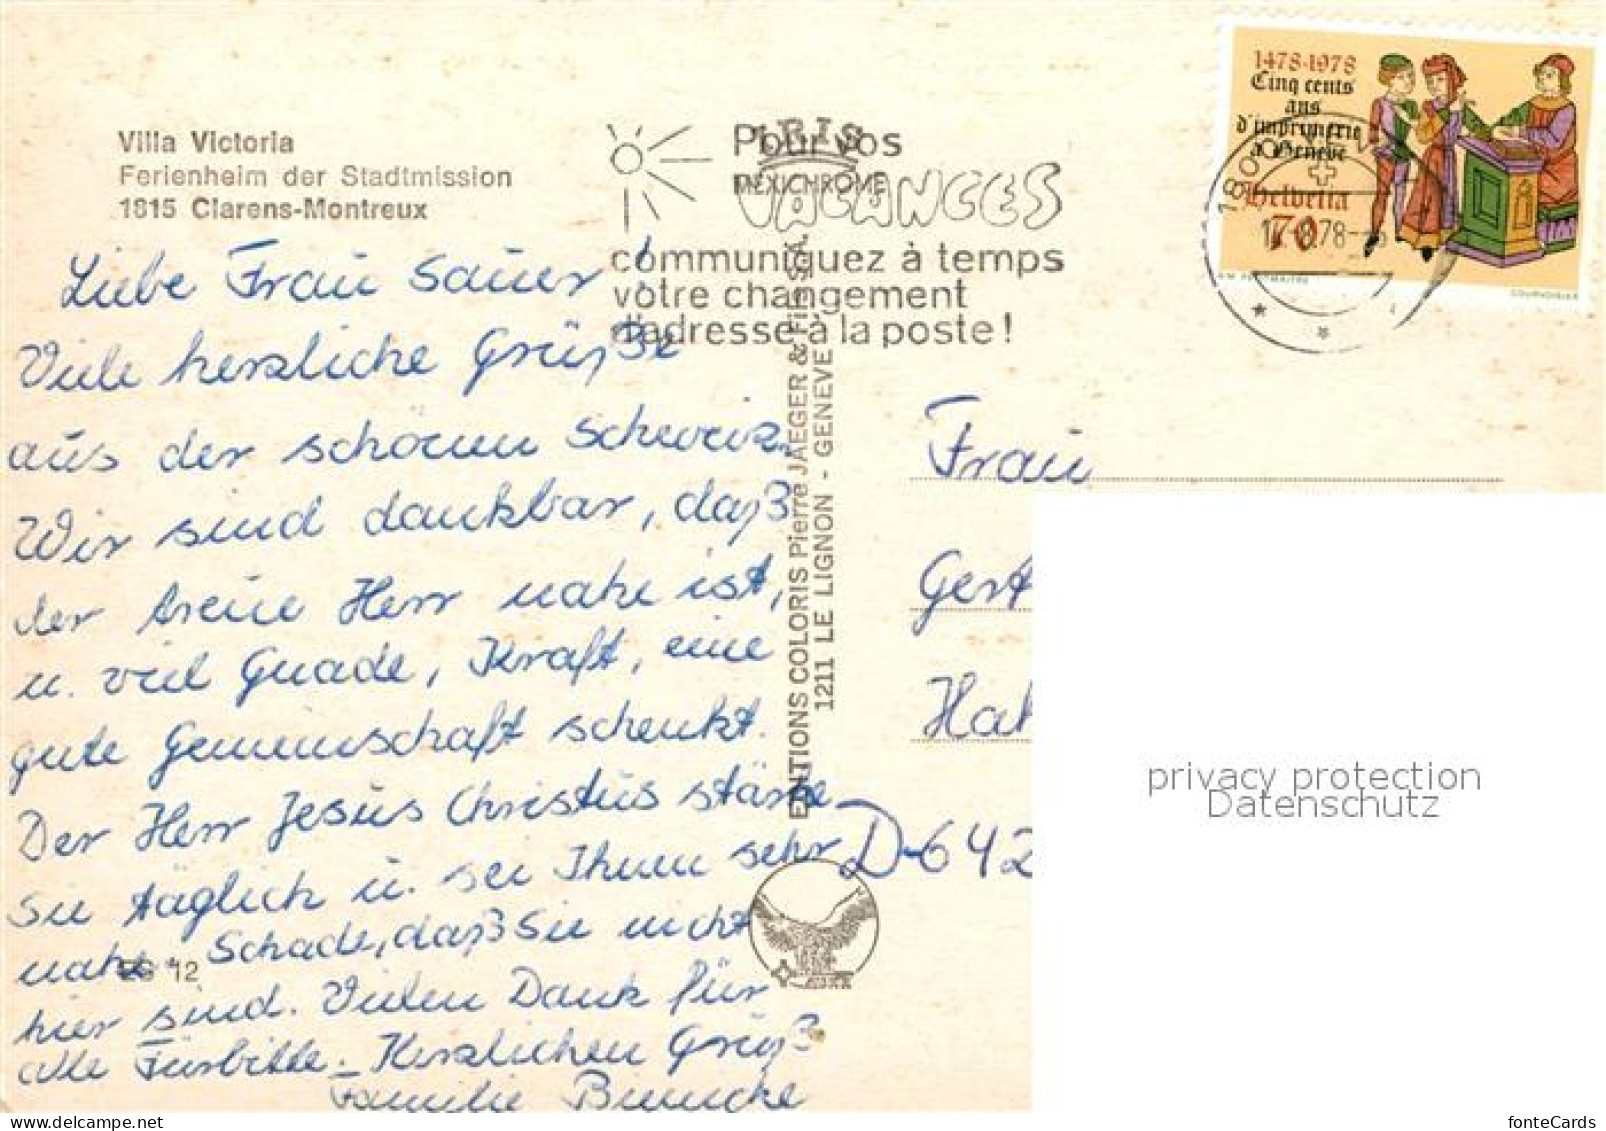 Villa Victoria
Ferienheim der Stadtmission
1815 Clarens-Montreux
Liebe Frau Sauer!
Viele herzliche Grüße
aus der schönen Schweiz.
Wir sind dankbar, daß
der treue Herr nahe ist,
u. viel Gnade, Kraft, eine
gute Gemeinschaft schenkt.
Der Herr Jesus Christus stärke
Sie täglich u. sei Ihnen sehr
nahe. Schade, daß Sie nicht
hier sind. Vielen Dank für
alle Fürbitte. Herzlichen Gruß
Familie
12
IRIS
MEXICHROME
Pour vos
VACANCES
communiquez à temps
votre changement
d'adresse à la poste!
EDITIONS COLORIS Pierre JAEGER & Fils SA.
1211 LE LIGNON - GENEVE
1478-1978
Cinq cents
ans
d'imprimerie
à Genève
Helvetia
70
COURVOISIER
Frau
Gert
Hah
D-642
privacy protection
Datenschutz
fonteCards